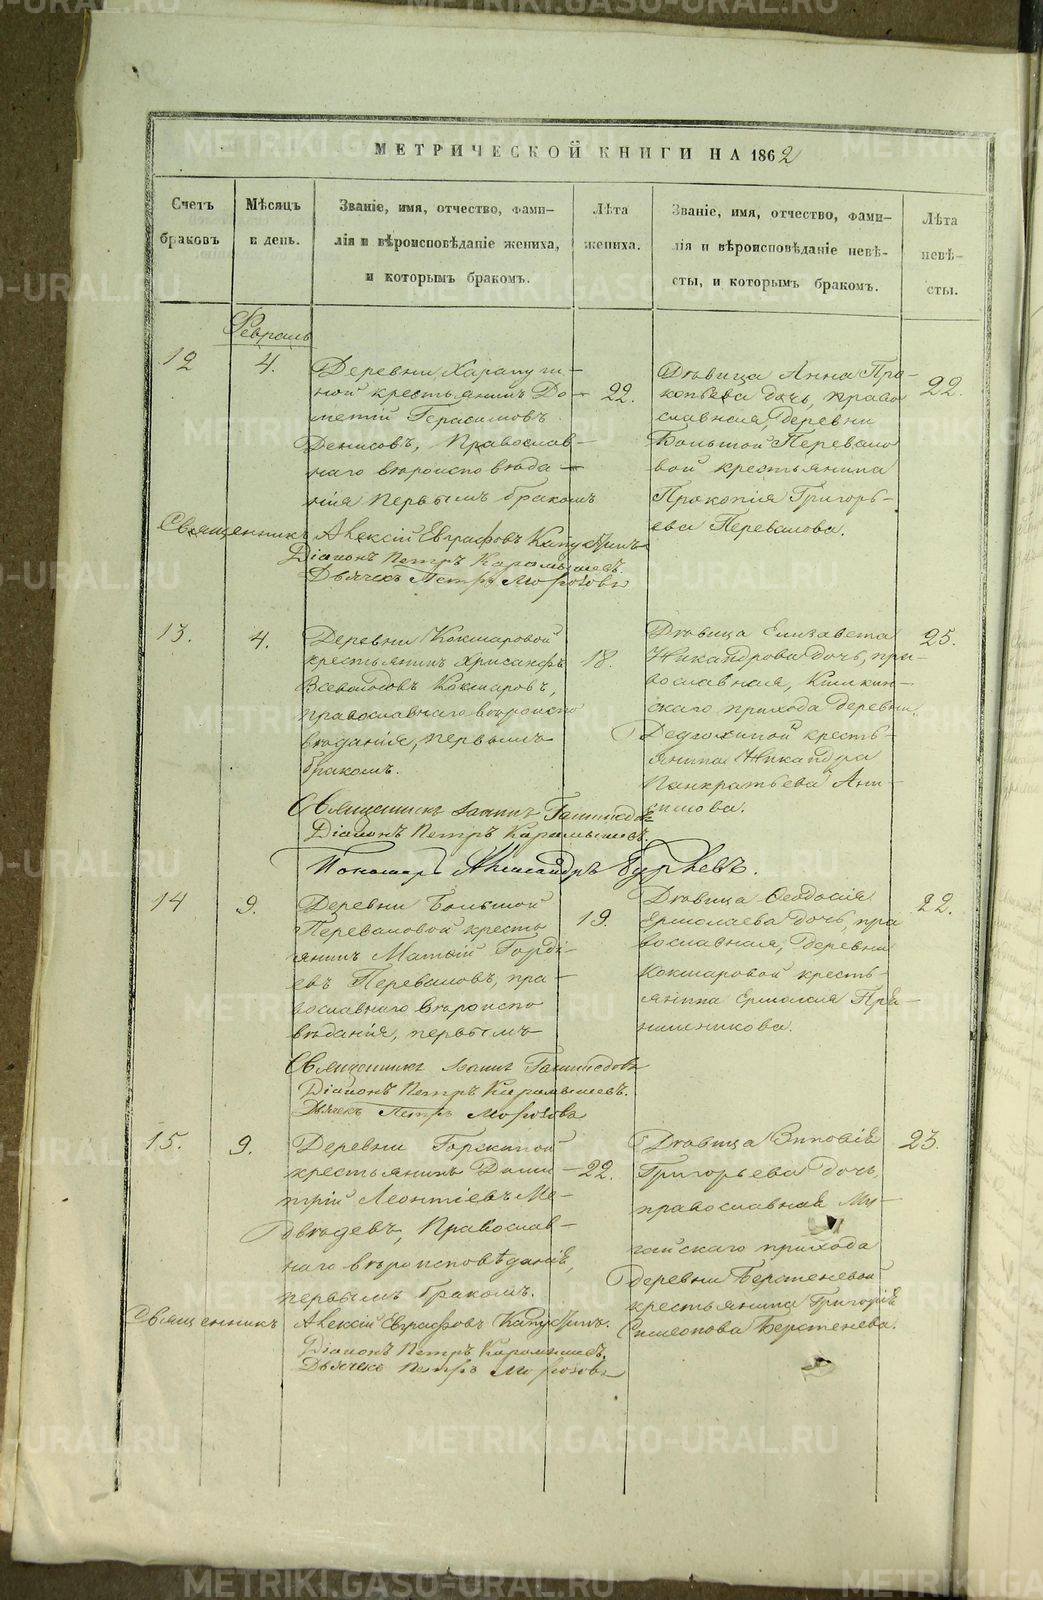 МЕТРИЧЕСКОЙ КНИГИ НА 1862
Счетъ браковъ
Мѣсяцъ и день.
Званіе, имя, отчество, фами-
лія и вѣроисповѣданіе жениха,
и которымъ бракомъ.
Лѣта жениха.
Званіе, имя, отчество, фами-
лія и вѣроисповѣданіе невѣ-
сты, и которымъ бракомъ.
Лѣта невѣ-
сты.
Февраль
12
4.
Деревни
крестьянинъ До-
метій Герасимовъ
Денисовъ, Православ-
наго вѣроисповѣда-
нія первымъ бракомъ
22.
Дѣвица Анна Про-
копьева дочь, право
славная, деревни
Большой Перевало
вой крестьянина
Прокопія Григорь-
ева Перевалова.
22.
Священникъ Алексій Евграфовъ Капустинъ
Діаконъ Петръ Карамышевъ.
Дьячекъ Петръ Морозовъ
13.
4.
Деревни Кокшаровой
крестьянинъ Хрисанфъ
Всеволодовъ Кокшаровъ,
православнаго вѣроиспо
вѣданія, первымъ
бракомъ.
18.
Дѣвица Елизавета
Никандрова дочь, пра-
вославная,
скаго прихода деревни
крестъ-
янина Никандра
Панкратьева Ани-
симова.
25.
Священникъ Іоаннъ
Діаконъ Петръ Карамышевъ
Пономарь Александръ Гурьевъ.
14
9.
Деревни Большой
Переваловой кресть
янинъ Матѳій Горді-
евъ Переваловъ, пра-
вославнаго вѣроиспо
вѣданія, первымъ
19.
Дѣвица Ѳеодосія
Ермолаева дочь, пра
вославная, деревни
Кокшаровой кресть-
янина Ермолая
22.
Священникъ Іоаннъ
Діаконъ Петръ Карамышевъ.
Дьячекъ Петръ Морозовъ
15.
9.
Деревни
крестьянинъ Дими-
трій Леонтіевъ Ме-
двѣдевъ, Православ-
наго вѣроисповѣданія,
первымъ бракомъ.
22.
Дѣвица Зиновія
Григорьева дочь,
православная Му-
гайскаго прихода
деревни Берстеневой
крестьянина Григорія
Симеонова Берстенева.
23.
Священникъ Алексій Евграфовъ Капустинъ.
Діаконъ Петръ Карамышевъ.
Дьячекъ Петръ Морозовъ
METRIKI.GASO-URAL.RU